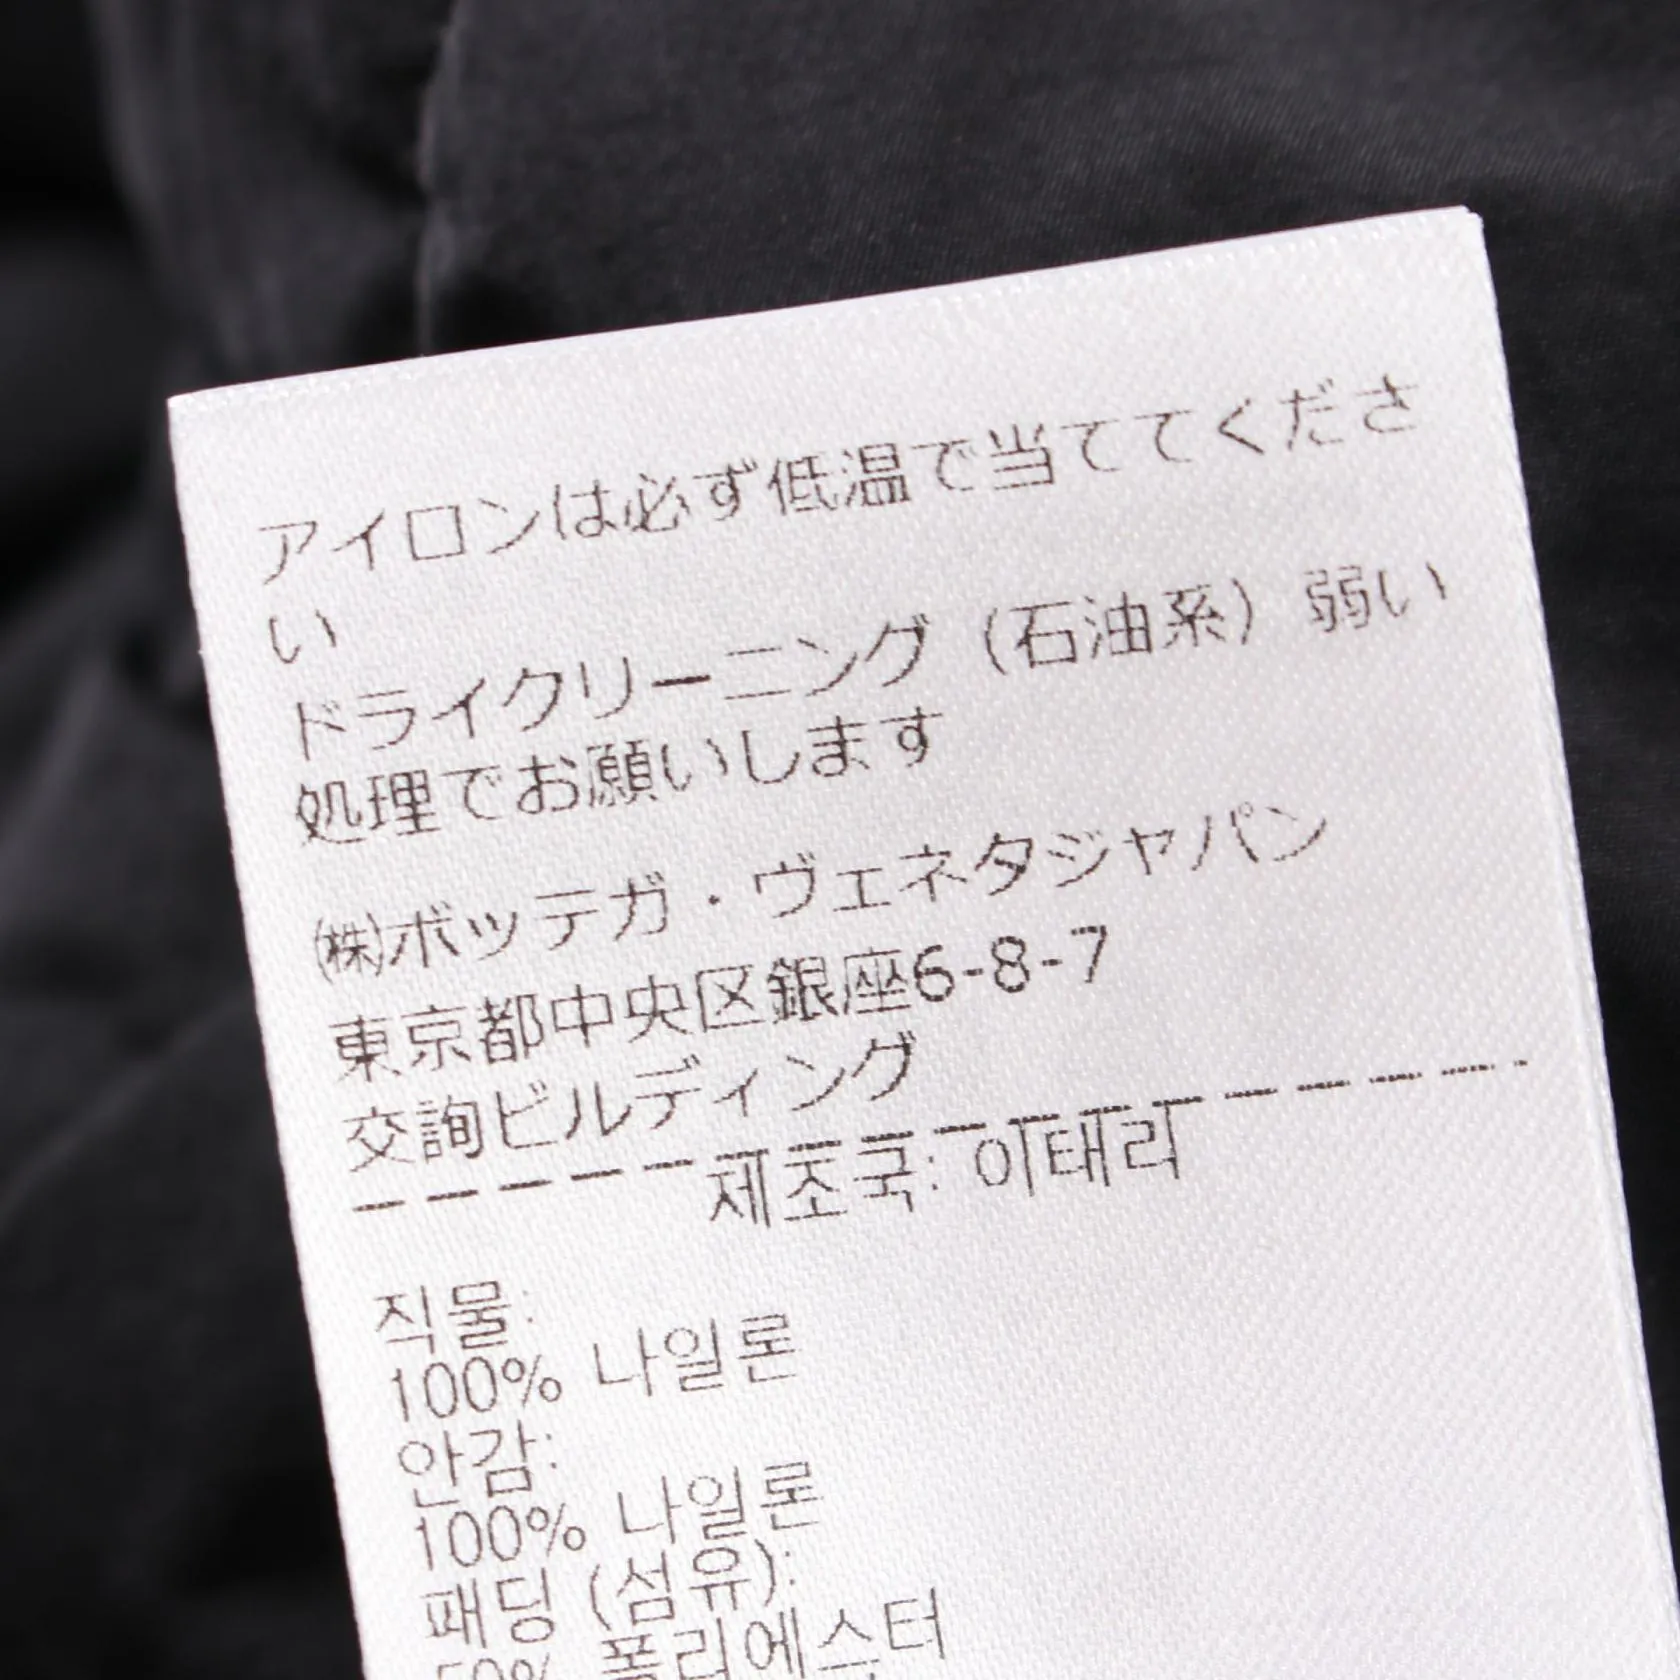 アイロンは必ず低温で当ててくださ
い
ドライクリーニング（石油系）弱い
処理でお願いします
㈱ボッテガ・ヴェネタジャパン
東京都中央区銀座6-8-7
交詢ビルディング
제조국: 이태리
직물:
100% 나일론
안감:
100% 나일론
패딩 (섬유):
50% 폴리에스터